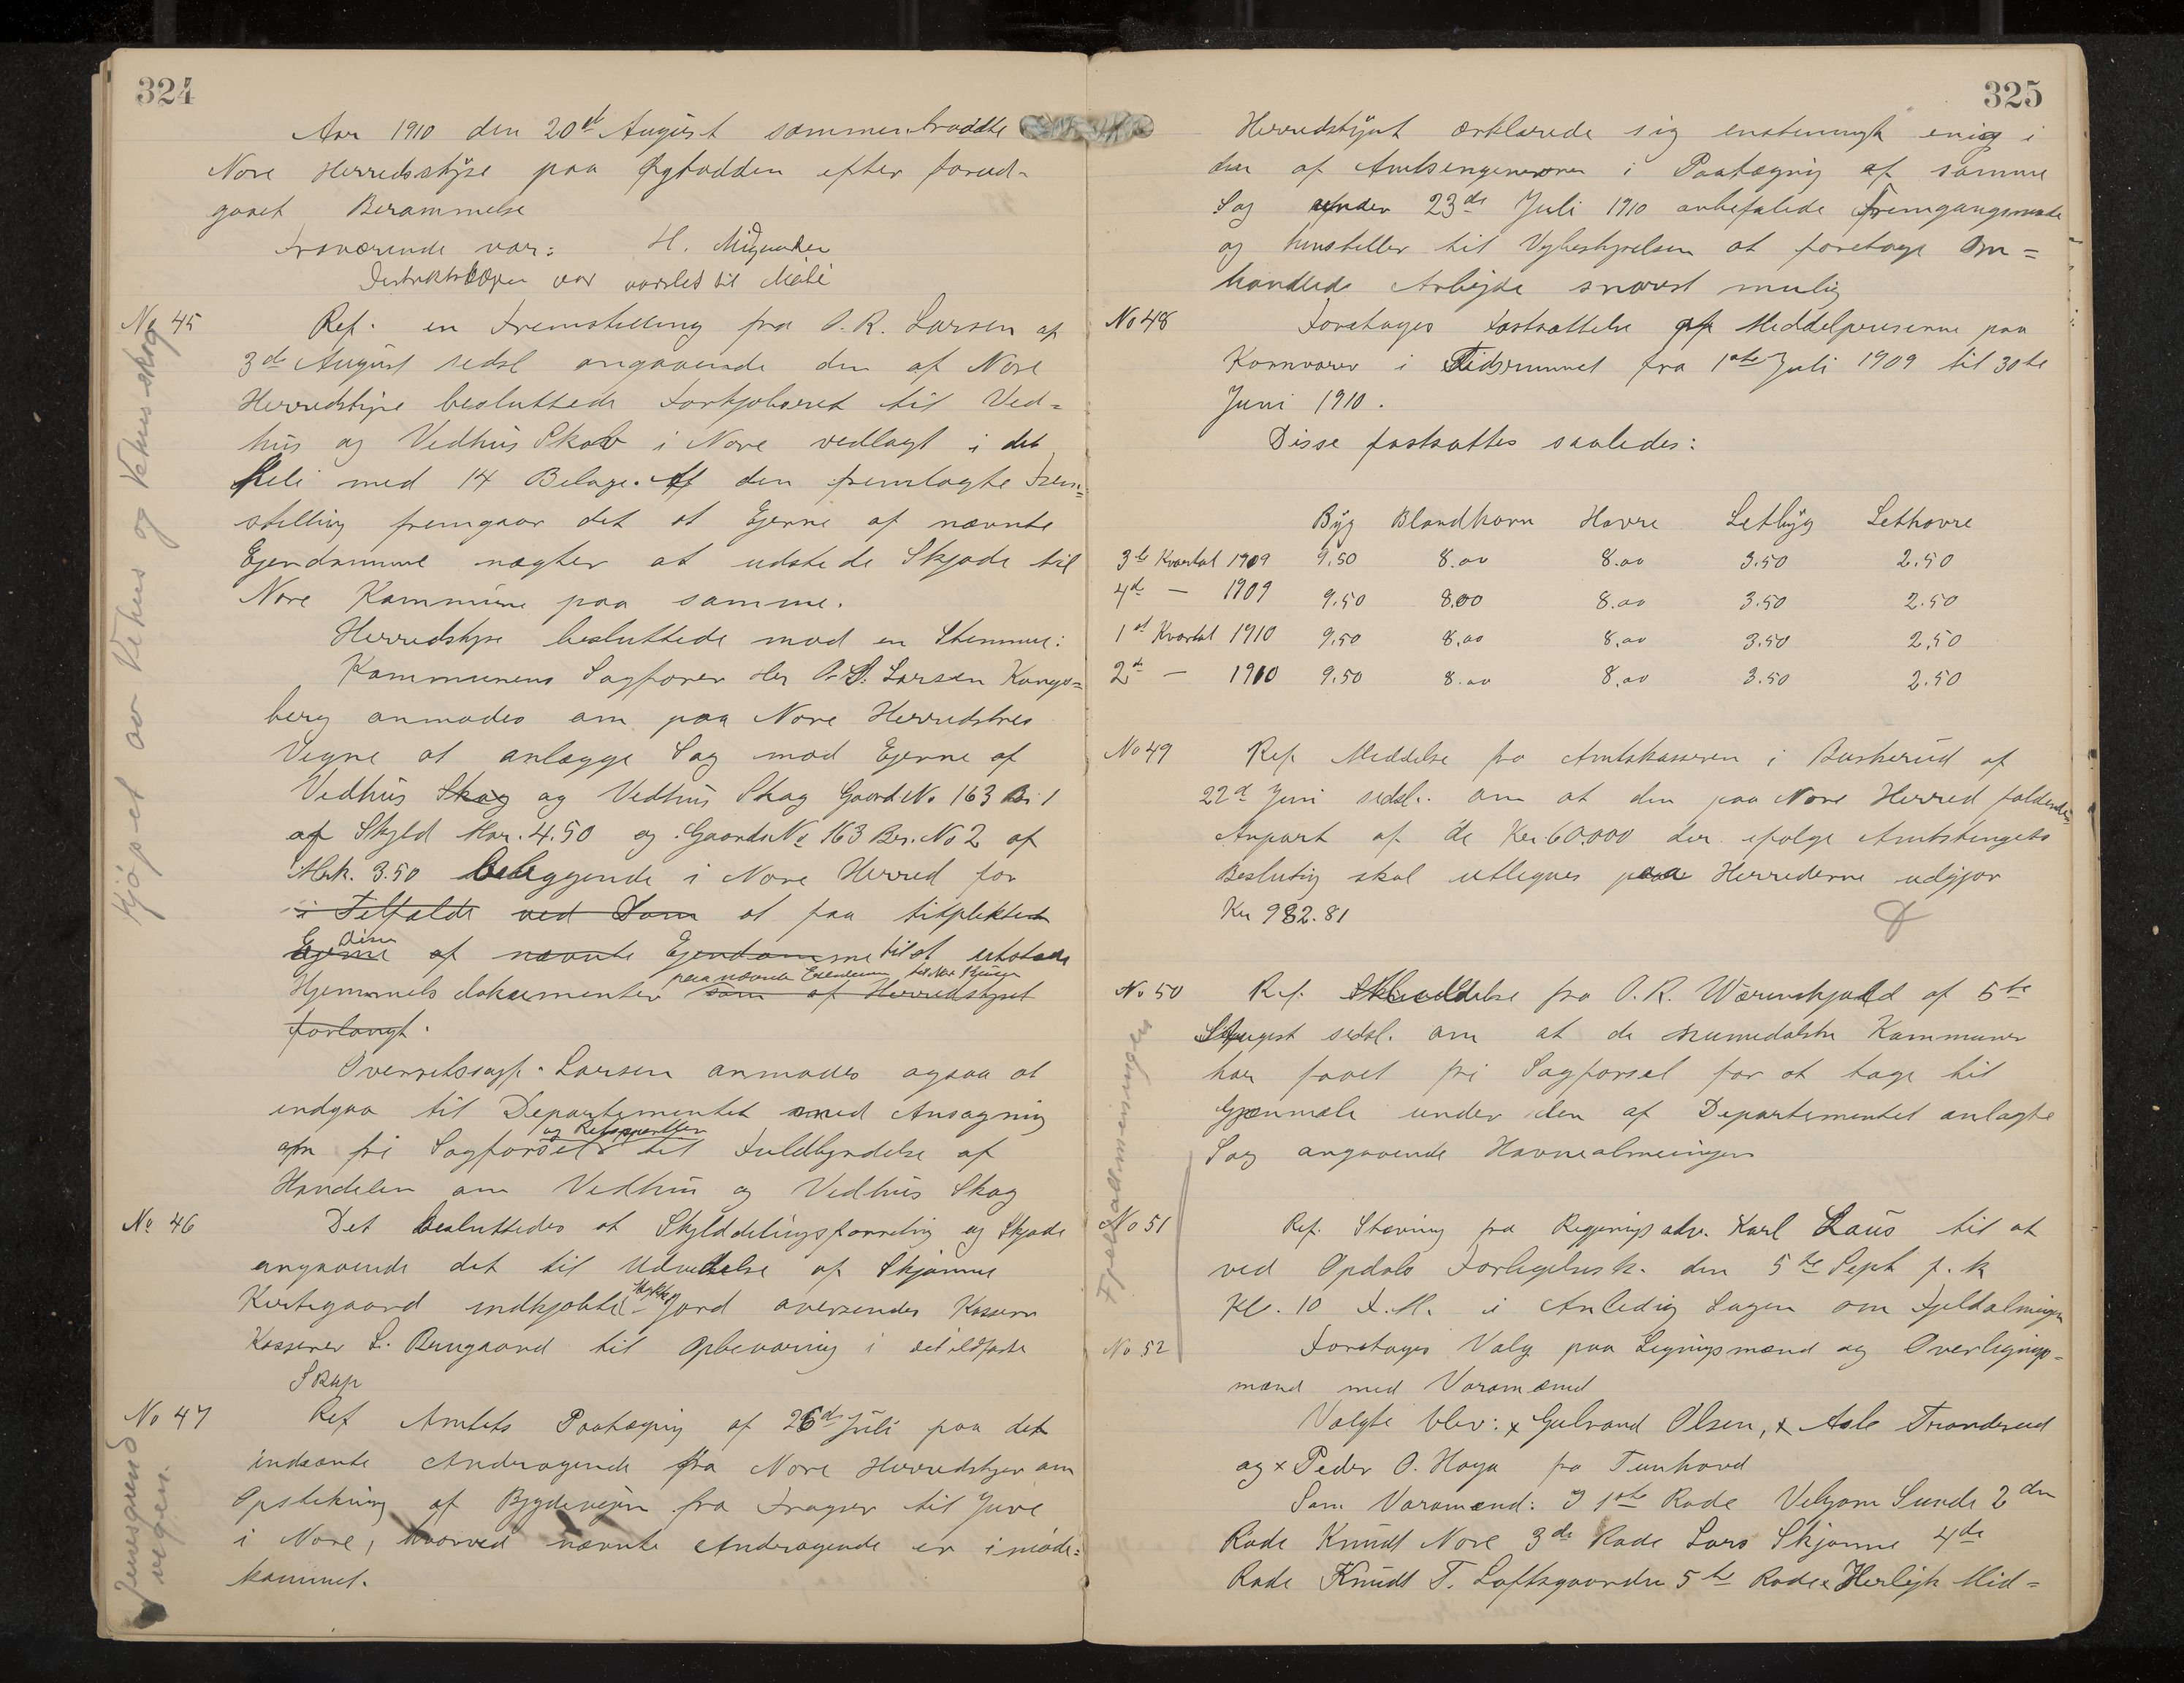 324
Aar 1910 den 20de August sammentraadte
Nore Herredsstyre paa Øygardden efter forud-
gaaet Berammelse
Fraværende var: H.
var varslet til Møde
No 45 Ref. en Fremstilling fra O. R. Larsen af
3de August sidstl angaaende den af Nore
Herredstyre besluttede Forkjøbsret til Ved=
hus og Vedhus Skov i Nore vedlagt i det
hele med 14 Belage. Af den fremlagte Frem=
stilling fremgaar det at Ejerne af nævnte
Ejendomme nægter at udstede Skjøde til
Nore Kommune paa samme.
Herredstyre besluttede mod en Stemme:
Kommunens Sagfører Hr O. R. Larsen Kongs=
berg anmodes om paa Nore Herredstyres
Vegne at anlægge Sag mod Ejerne af
Vedhus Skog og Vedhus Skog Gaards No 163 Br 1
af Skyld Mar. 4.50 og Gaards No 163 Br. No 2 af
Mrk. 3.50 beliggende i Nore Herred for
i Tilfælde ved Dom at faa tilpliktet
Disse
Ejerne af nævnte Ejendomme til at utstede
paa nævnte Ejendomme
Hjemmels dokumenter som af Herredstyret
forlangt.
Overretssagf. Larsen anmodes ogsaa at
indgaa til Departementet med Ansøgning
og
om fri Sagførsel til Fuldbyrdelse af
Handelen om Vedhus og Vedhus Skog
No 46 Det besluttedes at Skylddelingsforretning og Skjøde
angaaende det til Udvidelse af Skjønne
Kirkegaard indkjøbte Jord oversendes Kassern
Kasserer L. Brugaard til Opbevaring i det ildfaste
Skap
No 47 Ref Amtets Paategning af 26de Juli paa det
indsendte Andragende fra Nore Herredstyre om
Opstikning af Bygdevejen fra Fragser til Juve
i Nore, hvorved nævnte Andragende er imøde=
kommet.
Kjøpet av Vehus og Vehusskog
vegen.
325
Herredstyret ærklærede sig enstemmigt enig i
den af Amtsingeniøren i Paategning af samme
Sag under 23de Juli 1910 anbefalede Fremgangsmaade
og henstiller til Vejbestyrelsen at foretage Om=
handlede Arbejde snarest mulig
No 48 Foretages Fastsættelse af Middelpriserne paa
Kornvarer i Tidsrummet fra 1ste Juli 1909 til 30te
Juni 1910.
Disse fastsattes saaledes:
Byg Blandkorn Havre Letbyg Lethavre
3de Kvartal 1909 9.50 8.00 8.00 3.50 2.50
4de — 1909 9.50 8.00 8.00 3.50 2.50
1ste Kvartal 1910 9.50 8.00 8.00 3.50 2.50
2de — 1910 9.50 8.00 8.00 3.50 2.50
No 49 Ref. Meddelse fra Amtskasseren i Buskerud af
22de Juni sidstl. om at den paa Nore Herred faldende
Anpart af de Kr 60.000 der ifølge Amtstingets
Beslutnig skal utlignes paa Herrederne udgjør
Kr 982.81
No 50 Ref. Meddelelse fra O. R. Wærenskjold af 5te
August sidstl. om at de numedalske Kommuner
har faaet fri Sagførsel for at tage til
Gjenmæle under den af Departementet anlagte
Sag angaaende Havnealmeningen
No 51 Ref. Stævning fra Regjeringsadv. Karl Laus til at
ved Opdals Forligelsesk. den 5te Sept f. k
Kl. 10 F.M. i Anledig Sagen om Fjeldalmingen
No 52 Foretages Valg paa Ligningsmænd og Overlignings=
mænd med Varamænd
Valgte blev: x Gulvand Olsen, x Asle Tronderud
og x Peder O. Haga fra Tunhovd
Som Varamænd: I 1ste Rade Vebjørn Sunde 2den
Rade Knudt Nore 3de Rade Lars Skjønne 4de
Rade Knudt T. Loftsgaarden 5te Rade x Herleik Mid=
Fjeldalmenningen